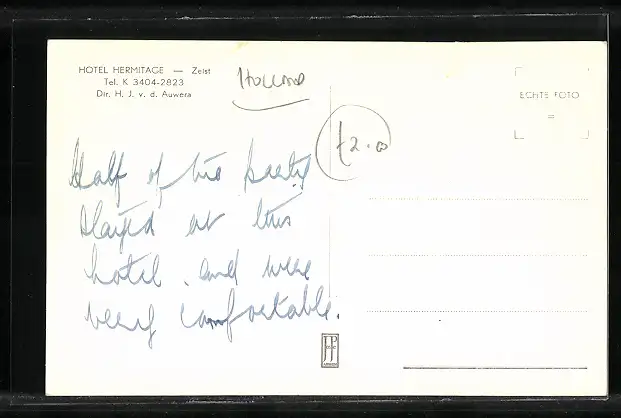 HOTEL HERMITAGE — Zeist
Tel. K 3404-2823
Dir. H. J. v. d. Auwera
Holland
ECHTE FOTO
£2.00
Half of the party
stayed at this
hotel and were
very comfortable.
JP